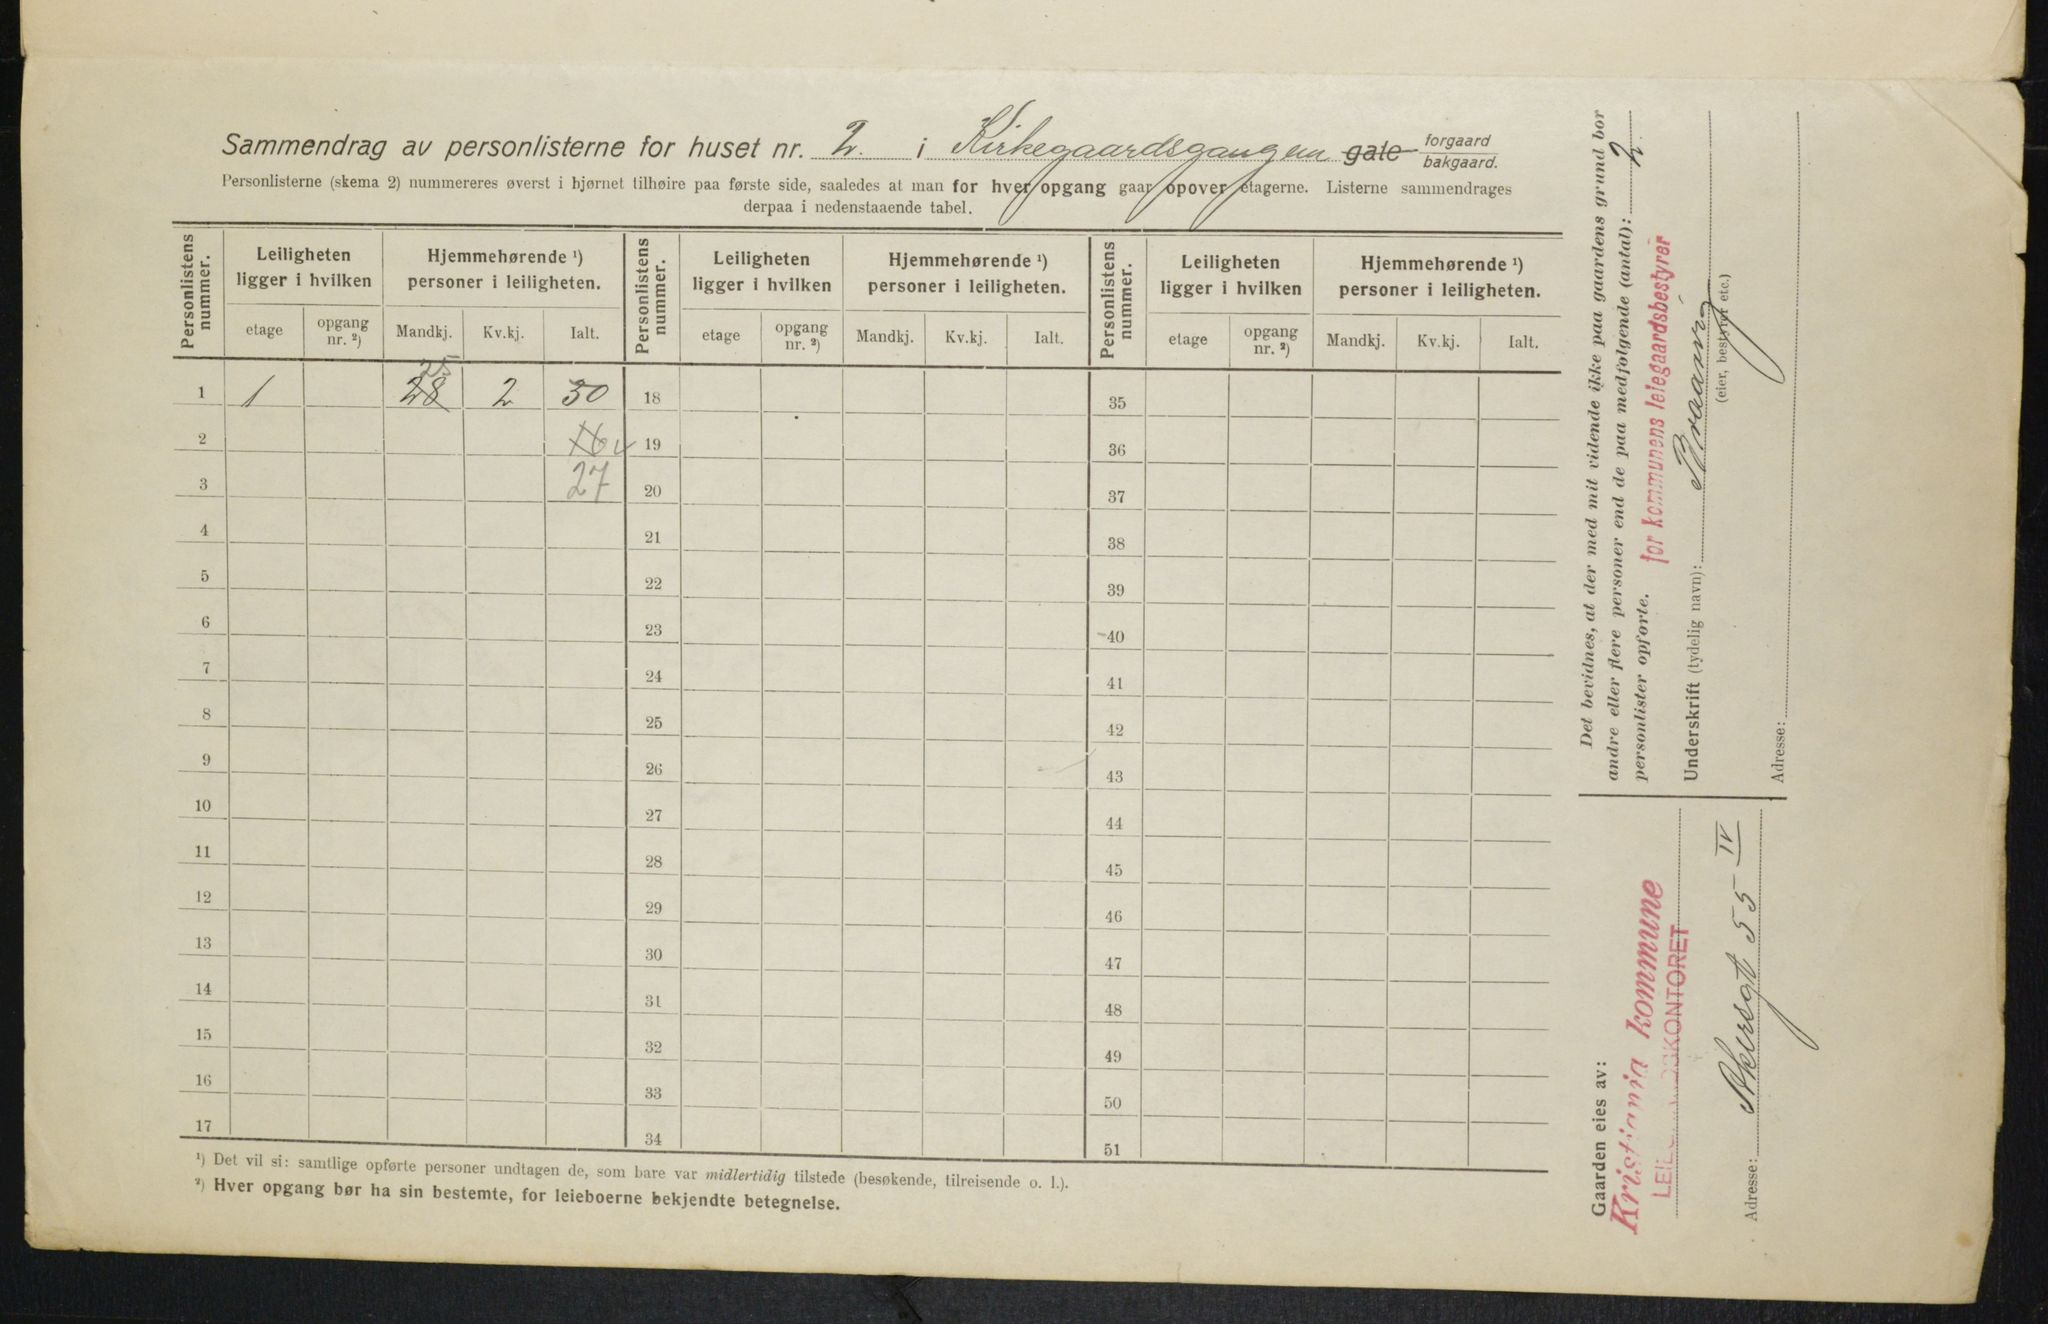 Sammendrag av personlisterne for huset nr. 2. i Kirkegaardsgangen gate forgaard bakgaard.
Personlisterne (skema 2) nummereres øverst i hjørnet tilhøire paa første side, saaledes at man for hver opgang gaar opover etagerne. Listerne sammendrages
derpaa i nedenstaaende tabel.
Personlistens nummer. Leiligheten ligger i hvilken Hjemmehørende ¹) personer i leiligheten. Personlistens nummer. Leiligheten ligger i hvilken Hjemmehørende ¹) personer i leiligheten. Personlistens nummer. Leiligheten ligger i hvilken Hjemmehørende ¹) personer i leiligheten.
etage opgang nr. ²) Mandkj. Kv.kj. Ialt. etage opgang nr. ²) Mandkj. Kv.kj. Ialt. etage opgang nr. ²) Mandkj. Kv.kj. Ialt.
25
1 1 28 2 30 18 35
2 19 36
3 27 20 37
4 21 38
5 22 39
6 23 40
7 24 41
8 25 42
9 26 43
10 27 44
11 28 45
12 29 46
13 30 47
14 31 48
15 32 49
16 33 50
17 34 51
¹) Det vil si: samtlige opførte personer undtagen de, som bare var midlertidig tilstede (besøkende, tilreisende o. l.).
²) Hver opgang bør ha sin bestemte, for leieboerne bekjendte betegnelse.
Det bevidnes, at der med mit vidende ikke paa gaardens grund bor
andre eller flere personer end de paa medfølgende (antal): 2
personlister opførte. for kommunens leiegaardsbestyrer
Underskrift (tydelig navn):
(eier, bestyrer etc.)
Adresse:
Gaarden eies av:
Kristiania kommune
Adresse: Akersgt 55 IV